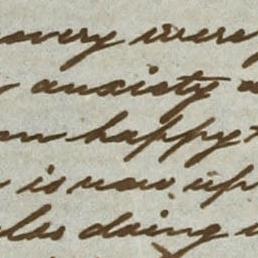 overy were
anxiety a
am happy t
is now up
also doing